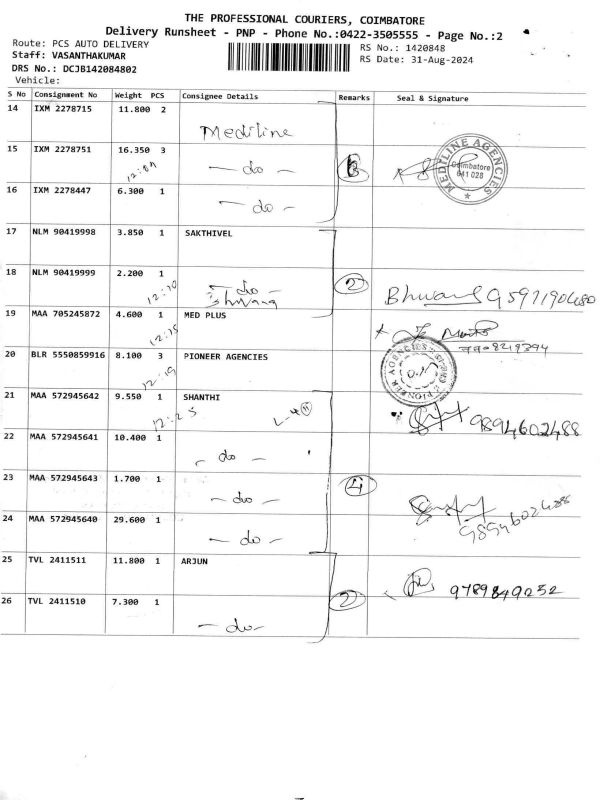 THE PROFESSIONAL COURIERS, COIMBATORE
Delivery Runsheet - PNP - Phone No.:0422-3505555 - Page No.:2
Route: PCS AUTO DELIVERY
RS No.: 1420848
Staff: VASANTHAKUMAR
RS Date: 31-Aug-2024
DRS No.: DCJB142084802
Vehicle:
S No Consignment No Weight PCS Consignee Details Remarks Seal & Signature
14 IXM 2278715 11.800 2 Mediline
15 IXM 2278751 16.350 3 - do -
MEDILINE AGENCIES Coimbatore 641 028
16 IXM 2278447 6.300 1 - do -
17 NLM 90419998 3.850 1 SAKTHIVEL
18 NLM 90419999 2.200 1 - do - 2
12:10
19 MAA 705245872 4.600 1 MED PLUS
12:15
20 BLR 5550859916 8.100 3 PIONEER AGENCIES
12:19
PIONEER AGENCIES
21 MAA 572945642 9.550 1 SHANTHI
12:25 9894602488
22 MAA 572945641 10.400 1 - do -
23 MAA 572945643 1.700 1 - do - 4
24 MAA 572945640 29.600 1 - do -
25 TVL 2411511 11.800 1 ARJUN
9789849252
26 TVL 2411510 7.300 1 - do - 2